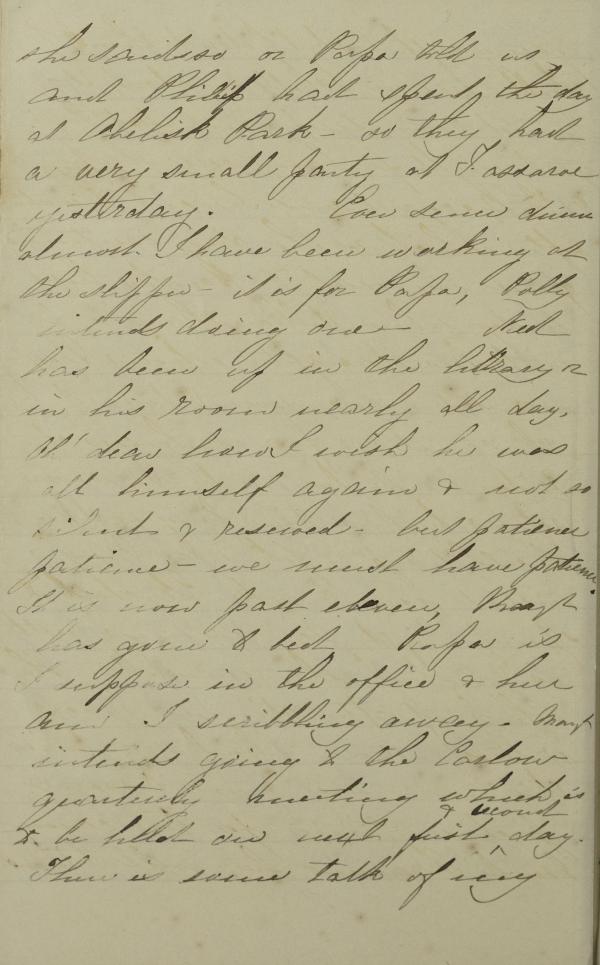 she said so or Papa told us
and Philip had spent the day
at Obelisk Park - so they had
a very small party at Fassaroe
yesterday. Ever since dinner
almost I have been working at
the slipper - it is for Papa, Polly
intends doing one - Ned
has been up in the library or
in his room nearly all day.
Oh' dear how I wish he was
all himself again & not so
silent & reserved - but patience
patience - we must have patience.
It is now past eleven,
has gone to bed Papa is
I suppose in the office & here
am I scribbling away.
intends going to the Carlow
quarterly meeting which is
& second
to be held on next first day.
There is some talk of my